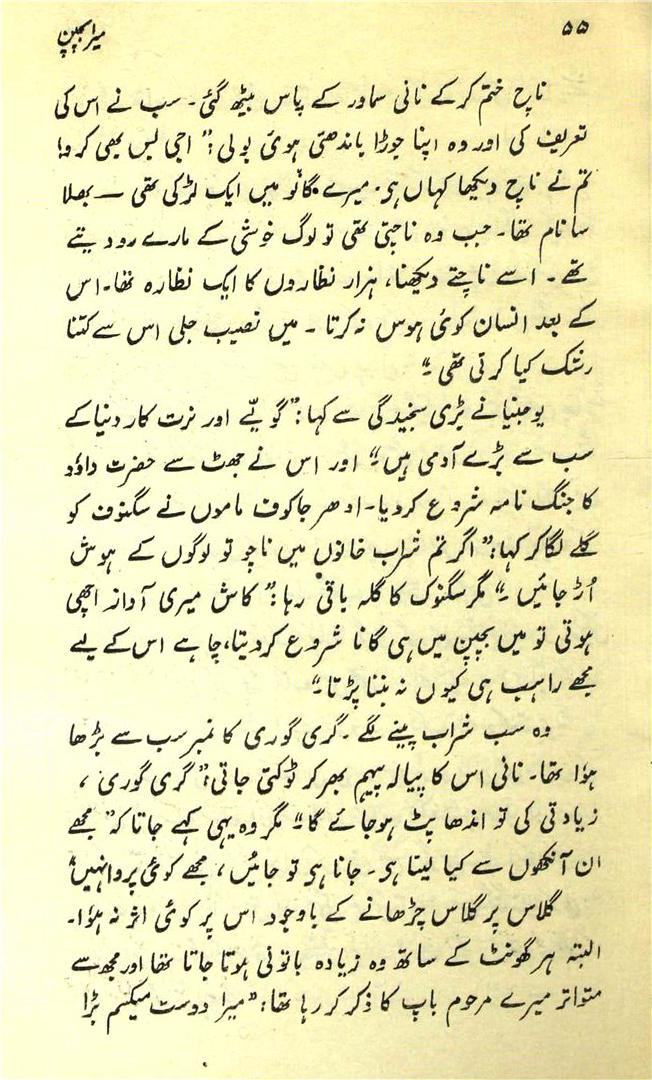 ۵۵ میرا بچپن
ناچ ختم کر کے نانی سماور کے پاس بیٹھ گئی۔ سب نے اس کی
تعریف کی اور وہ اپنا جوڑا باندھتی ہوئی بولی :" اجی بس بھی کرو!
تم نے ناچ دیکھا کہاں ہی۔ میرے گانو میں ایک لڑکی تھی — بھلا
سا نام تھا۔ جب وہ ناچتی تھی تو لوگ خوشی کے مارے رو دیتے
تھے۔ اسے ناچتے دیکھنا، ہزار نظاروں کا ایک نظارہ تھا۔ اس
کے بعد انسان کوئی ہوس نہ کرتا۔ میں نصیب جلی اس سے کتنا
رشک کیا کرتی تھی۔"
یوجنیا نے بڑی سنجیدگی سے کہا :" گویّے اور نرت کار دنیا کے
سب سے بڑے آدمی ہیں۔" اور اس نے جھٹ سے حضرت داؤد
کا جنگ نامہ شروع کر دیا۔ ادھر جاکوف ماموں نے سگنوف کو
گلے لگا کر کہا :" اگر تم شراب خانوں میں ناچو تو لوگوں کے ہوش
اُڑ جائیں۔" مگر سگنوک کا گلہ باقی رہا :" کاش میری آواز اچھی
ہوتی تو میں بچپن میں ہی گانا شروع کر دیتا، چاہے اس کے لیے
مجھے راہب ہی کیوں نہ بننا پڑتا۔"
وہ سب شراب پینے لگے۔ گری گوری کا نمبر سب سے بڑھا
ہؤا تھا۔ نانی اس کا پیالہ پیہم بھر کر ٹوکتی جاتی :" گری گوری،
زیادتی کی تو اندھا پٹ ہو جائے گا۔" مگر وہ یہی کہے جاتا کہ "مجھے
ان آنکھوں سے کیا لینا ہی۔ جانا ہی تو جائیں، مجھے کوئی پروا نہیں"
گلاس پر گلاس چڑھانے کے باوجود اس پر کوئی اثر نہ ہؤا۔
البتہ ہر گھونٹ کے ساتھ وہ زیادہ باتونی ہوتا جاتا تھا اور مجھ سے
متواتر میرے مرحوم باپ کا ذکر کر رہا تھا :" میرا دوست میکسم بڑا